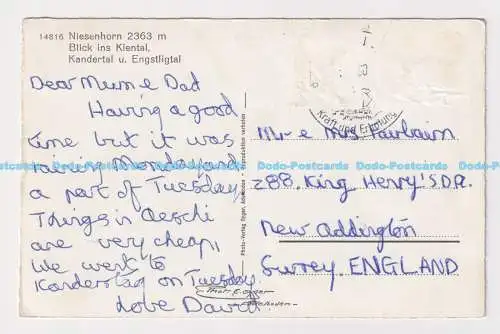 14816 Niesenhorn 2363 m
Blick ins Kiental,
Kandertal u. Engstligtal
Dear Mum e Dad
Having a good
time but it was
raining Monday and
a part of Tuesday
Things in Aeschi
are very cheap,
We went to
Kandersteg on Tuesday
Love David.
Photo-Verlag Gyger, Adelboden - Reproduktion verboten
Kraft und Erholung
Mr e Mrs Fairbairn
288 King Henry'S DR.
New Addington
Surrey ENGLAND
Adelboden
Dodo-Postcards Dodo-Postcards Dodo-Postcards Dodo-Postcards